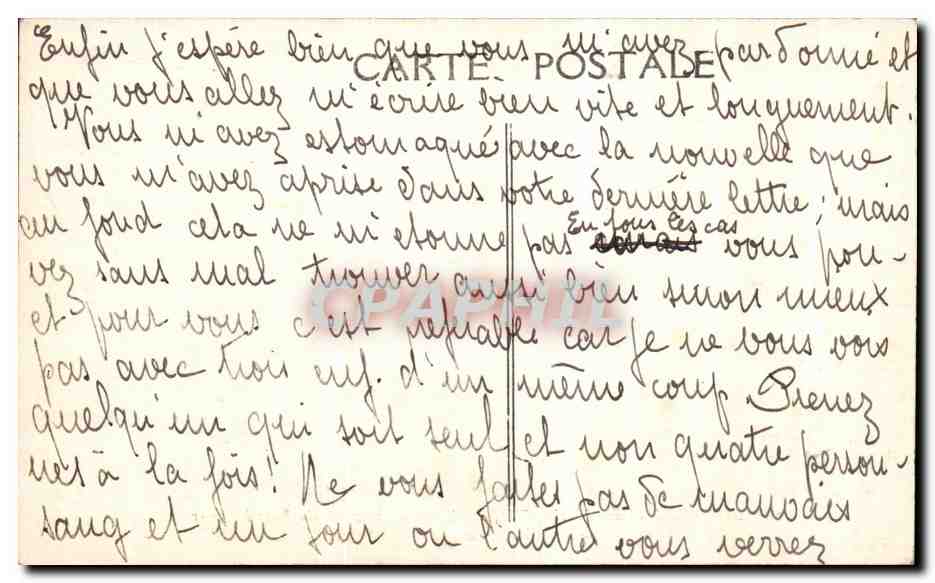 Enfin j'espère bien que vous m'avez pardonné et
CARTE POSTALE
que vous allez m'écrire bien vite et longuement.
Vous m'avez estomaqué avec la nouvelle que
vous m'avez aprise dans votre dernière lettre ; mais
au fond cela ne m'etonne pas En tous les cas vous pou-
vez sans mal trouver aussi bien sinon mieux
et pour vous c'est car je ne vous vois
pas avec trois enf. d'un même coup Prenez
quelqu'un qui soit seul et non quatre person-
nes à la fois! Ne vous faites pas de mauvais
sang et un jour ou l'autre vous verrez
CPAPHIL